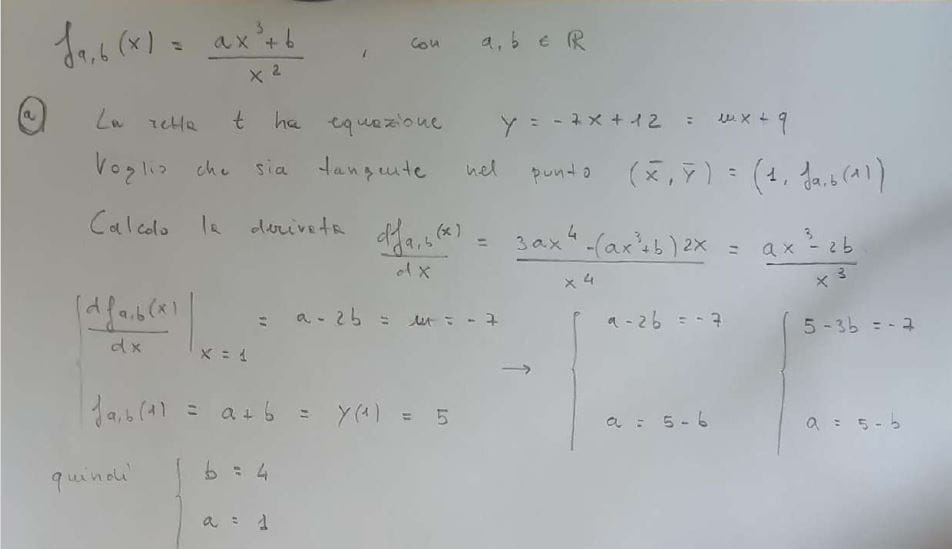 f_{a,b}(x) = \frac{ax^3+b}{x^2} , con a,b ∈ ℝ
(a) La retta t ha equazione y = -7x+12 = mx+q
Voglio che sia tangente nel punto (\bar{x}, \bar{y}) = (1, f_{a,b}(1))
Calcolo la derivata \frac{df_{a,b}(x)}{dx} = \frac{3ax^4-(ax^3+b)2x}{x^4} = \frac{ax^3-2b}{x^3}
{ \frac{df_{a,b}(x)}{dx} |_{x=1} = a-2b = m = -7 → { a-2b = -7 { 5-3b = -7
f_{a,b}(1) = a+b = y(1) = 5 a = 5-b a = 5-b
quindi { b = 4
a = 1